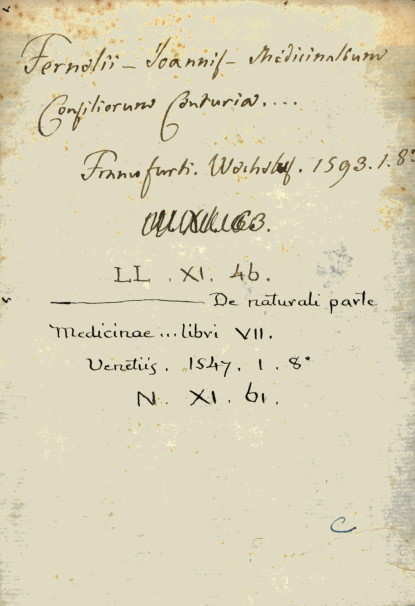 Fernelii - Joannis - Medicinalium
Consiliorum Centuria....
Francofurti. Wechelus. 1593. 1. 8°
LL. XI. 46.
De naturali parte
Medicinae... libri VII.
Venetiis. 1547. 1. 8°
N. XI. 61.
C